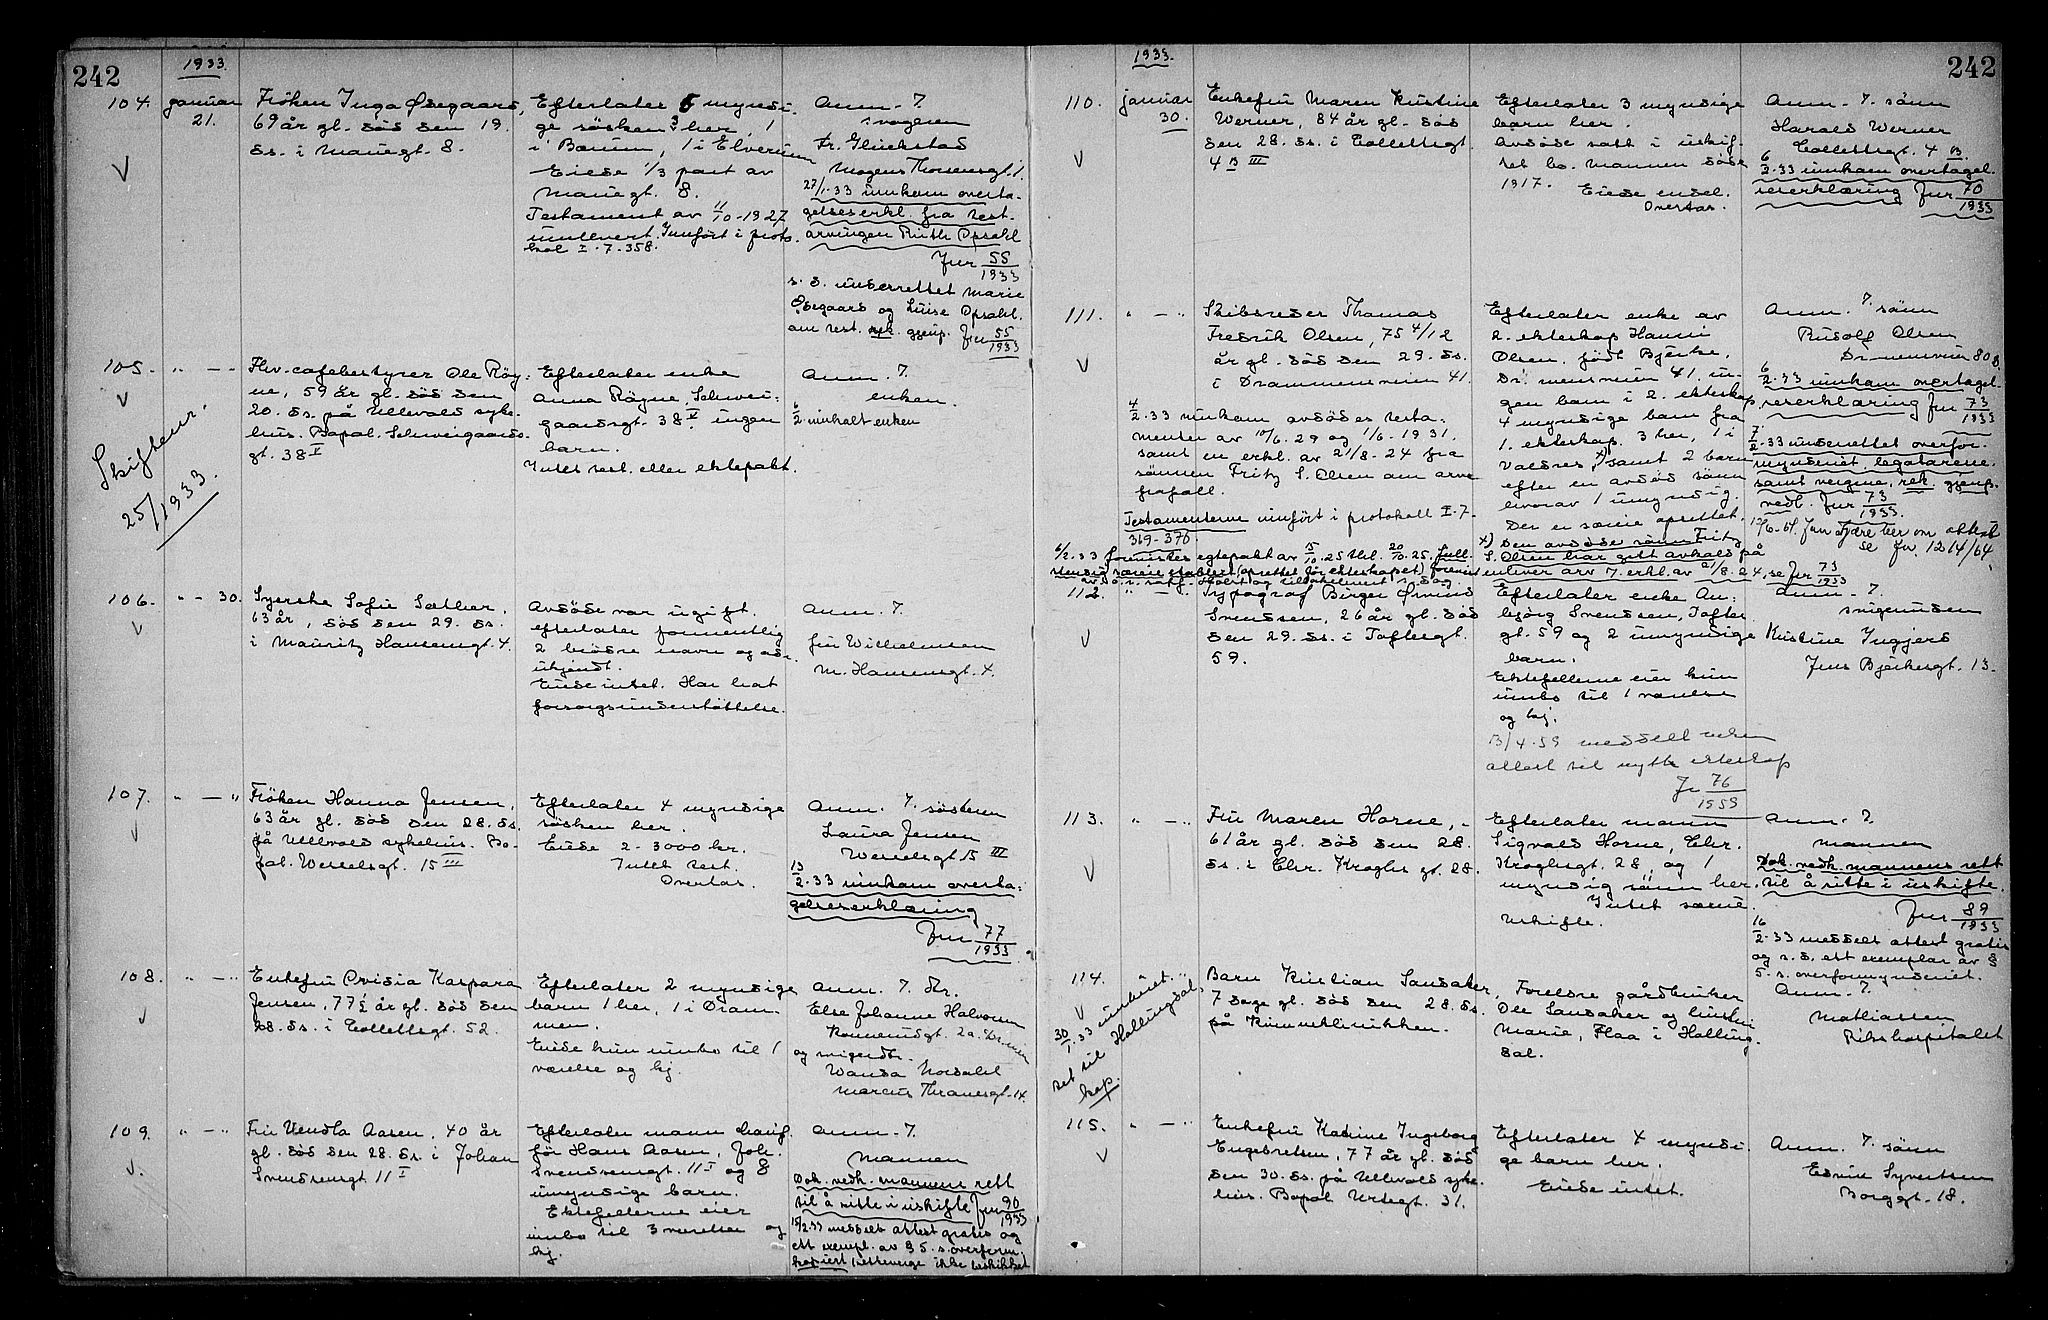 242
1933.
104. januar 21.
Fröken Inga Ødegaard,
69 år gl. död den 19.
ds. i Mariegt. 8.
Efterlater 5 myndi-
ge sösken 3 her, 1
i Bærum, 1 i Elverum
Eiede 1/3 part av
Mariegt. 8.
Testament av 11/10-1927
innlevert. Innfört i proto-
kol I-7-358.
Anm. 7.
svogeren
Fr. Glückstad
Mogens Thorsensgt. 1.
27/1-33 innkom overta-
gelseserkl. fra test.
arvingen Ruth Opsahl
Jnr 55/1933
s. d. underrettet Marie
Ødegaard og Luise Opsahl.
om test. rek. gjenp. Jnr 55/1933
105. " — "
Fhv. cafebestyrer Ole Röy-
ne, 59 år gl. död den
20. ds. på Ullevold syke-
hus. Bopel. Schweigaards-
gt. 38 V
Efterlater enke
Anna Röyne, Schwei-
gaardsgt. 38 V ingen
barn.
Intet test. eller ektepakt.
Anm. 7.
enken.
6/2 innkalt enken
Skiftenr.
25/1933.
106. " - 30.
Syerske Sofie Sæther,
63 år, död den 29. ds.
i Mauritz Hansensgt. 4.
Avdöde var ugift.
efterlater formentlig
2 brödre navn og adr.
ukjendt.
Eiede intet. Har hat
forsorgsunderstöttelse.
Anm. 7.
fru Wilhelmsen
M. Hansensgt. 4.
107. " — "
Fröken Hanna Jensen,
63 år gl. död den 28. ds.
på Ullevold sykehus. Bo-
pel. Wesselsgt. 15 III
Efterlater 4 myndige
sösken her.
Eiede 2-3000 kr.
Intet test.
Overtas.
Anm. 7. sösteren
Laura Jensen
Wesselsgt. 15 III
13/2-33 innkom overta-
gelseserklæring
Jnr 77/1933
108. " — "
Enkefru Ovidia Kaspara
Jensen, 77 1/2 år gl. död den
28. ds. i Collettsgt. 52.
Efterlater 2 myndige
barn 1 her, 1 i Dram-
men.
Eiede kun innbo til 1
værelse og kj.
Anm. 7. dtr.
Else Johanne Halvorsen
og svigerdtr.
Wanda Nordahl
Marcus Thranesgt. 14.
109. " — "
Fru Vendla Aasen, 40 år
gl. död den 28. ds. i Johan
Svendsensgt 11 I
Efterlater mann chauf-
för Hans Aasen, Joh.
Svendsensgt. 11 I og 8
umyndige barn.
Ektefellerne eier
innbo til 3 værelser og
kj.
Anm. 7.
mannen
Dok. vedk. mannens rett
til å sitte i uskifte Jnr 90/1933
15/2-33 meddelt attest gratis og
ett exempl. av § 5. s. overform.
setteverge ikke beskikket
242
1933.
110. januar 30.
Enkefru Maren Kristine
Werner, 84 år gl. död
den 28. ds. i Collettsgt.
4 B III
Efterlater 3 myndige
barn her.
Avdöde satt i uskif-
tet bo. Mannen döde
1917. Eiede endel.
Overtas.
Anm. 7. sönn
Harald Werner
Collettsgt. 4 B.
6/2-33 innkom overtagel-
seserklæring Jnr 70/1933
111. " — "
Skibsreder Thomas
Fredrik Olsen, 75 4/12
år gl. död den 29. ds.
i Drammensveien 41.
4/2-33 innkom avdödes testa-
menter av 10/6-29 og 1/6-1931.
samt en erkl. av 21/8-24 fra
sönnen Fritz S. Olsen om arve
frafall.
Testamenterne innfört i protokoll I-7-
369-370.
Efterlater enke av
2. ekteskap Hanni
Olsen, född Bjerke,
Dr.mensveien 41. in-
gen barn i 2. ekteskap
4 myndige barn fra
1. ekteskap, 3 her, 1 i
Valdres, x) samt 2 barn
efter en avdöd sönn
hvorav 1 umyndig.
Der er særeie oprettet.
x) Den avdöde sönn Fritz
S. Olsen har gitt avkald på
enhver arv 7. erkl. av 21/8-24, se Jnr 73/1933
Anm. 7. sönn
Rudolf Olsen
Dr.mensveien 80 B.
6/2-33 innkom overtagel-
seserklæring Jnr 73/1933
7/2-33 underrettet overfor-
mynderiet, legatarene.
samt vergene, rek. gjenp.
vedl. Jnr 73/1933.
se Jnr. 1214/64.
6/2-33 fremvistes egtepakt av 15/10-25 tlst. 20/10-25. full-
stendig særeie etablert (oprettet för ekteskapet)
112. " — "
Typograf Birger Øivind
Svendsen, 26 år gl. död
den 29. ds. i Toftesgt.
59.
Efterlater enke An-
björg Svendsen, Toftes-
gt. 59 og 2 umyndige
barn.
Ektefellerne eier kun
innbo til 1 værelse
og kj.
13/4-59 meddelt enken
attest til nytt ekteskap
Jr 76/1959
Anm. 7.
svigerinden
Kristine Ingjerd
Jens Bjelkesgt. 13.
113. " — "
Fru Maren Horne,
61 år gl. död den 28.
ds. i Chr. Kroghs gt. 28.
Efterlater mann
Sigvald Horne, Chr.
Kroghsgt. 28, og 1
myndig sönn her.
Intet særeie.
Uskifte.
Anm. 7.
mannen
Dok. vedk. mannens rett
til å sitte i uskifte.
Jnr 89/1933
16/2-33 meddelt attest gratis
og s. d. ett exemplar av §
5. s. overformynderiet.
114. " — "
30/1-33 innberet-
tet til Hallingdal,
Barn Kristian Sandaker,
7 dage gl. död den 28. ds.
på Kvinneklinikken.
Foreldre gårdbruker
Ole Sandaker og hustru
Marie, Flaa i Halling-
dal.
Anm. 7.
Mathiassen
Rikshospitalet
115. " — "
Enkefru Katrine Ingeborg
Engebretsen, 77 år gl. död
den 30. ds. på Ullevold syke-
hus. Bopel Urtegt. 31.
Efterlater 4 myndi-
ge barn her.
Eiede intet.
Anm. 7. sönn
Edvin Syvertsen
Borggt. 18.